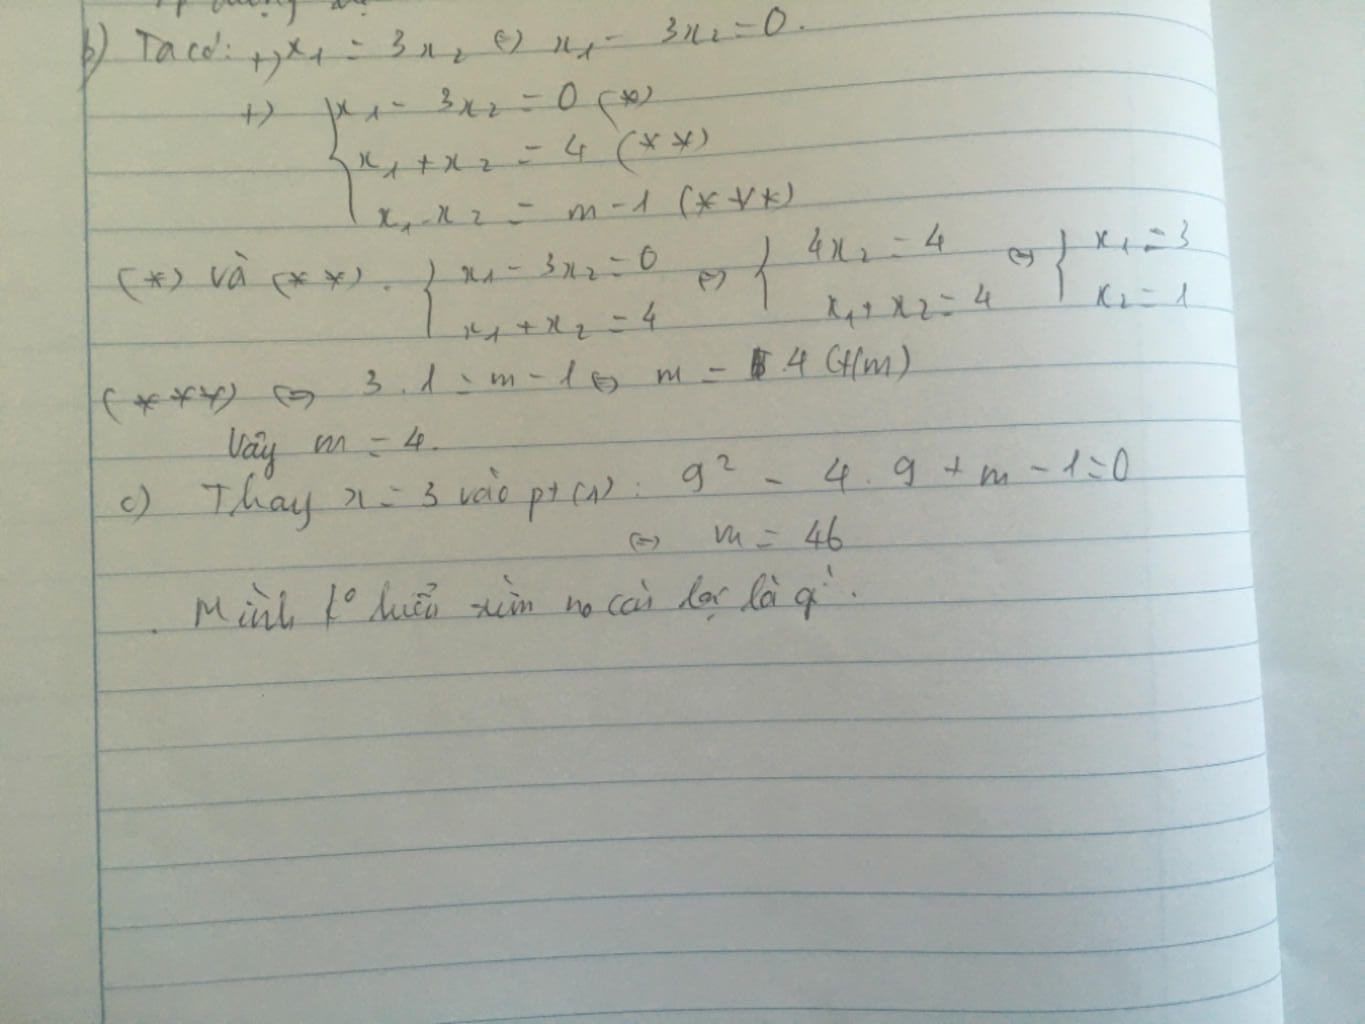 b) Ta có: +) x₁ = 3x₂ ⇔ x₁ - 3x₂ = 0.
+) { x₁ - 3x₂ = 0 (*)
x₁ + x₂ = 4 (**)
x₁.x₂ = m - 1 (***)
(*) và (**). { x₁ - 3x₂ = 0 ⇔ { 4x₂ = 4 ⇔ { x₁ = 3
x₁ + x₂ = 4 x₁ + x₂ = 4 x₂ = 1
(***) ⇔ 3.1 = m - 1 ⇔ m = 4 (t/m)
Vậy m = 4.
c) Thay x = 3 vào pt (1): 9² - 4.9 + m - 1 = 0
⇔ m = 46
Mình k° hiểu no còn lại là gì.